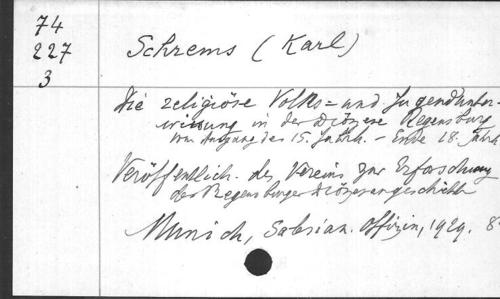 74
227
3
Schrems (Karl)
Die religiöse Volks= und Jugendunter-
weisung in der Diözese Regensburg
vom Ausgang des 15. Jahrh. - Ende 18. Jahrh.
Veröffentlich. des Vereins zur Erforschung
der Regensburger Diözesangeschichte
Munich, Salesian. Offizin, 1929. 8